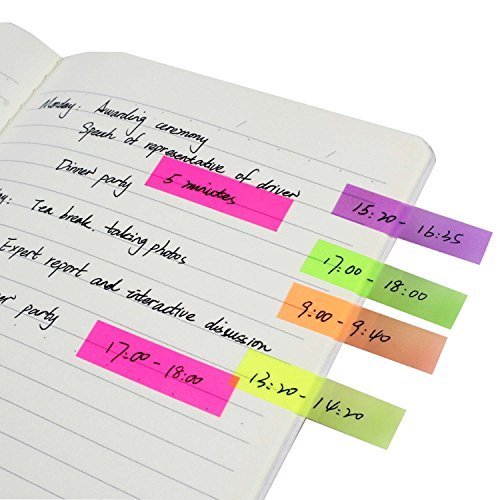 Monday: Awarding ceremony
Speech of representative of driver
Dinner party 5 minutes
15:20 - 16:35
y: Tea break, taking photos
17:00 - 18:00
Expert report and interactive discussion
9:00 - 9:40
party
17:00 - 18:00
13:20 - 14:20